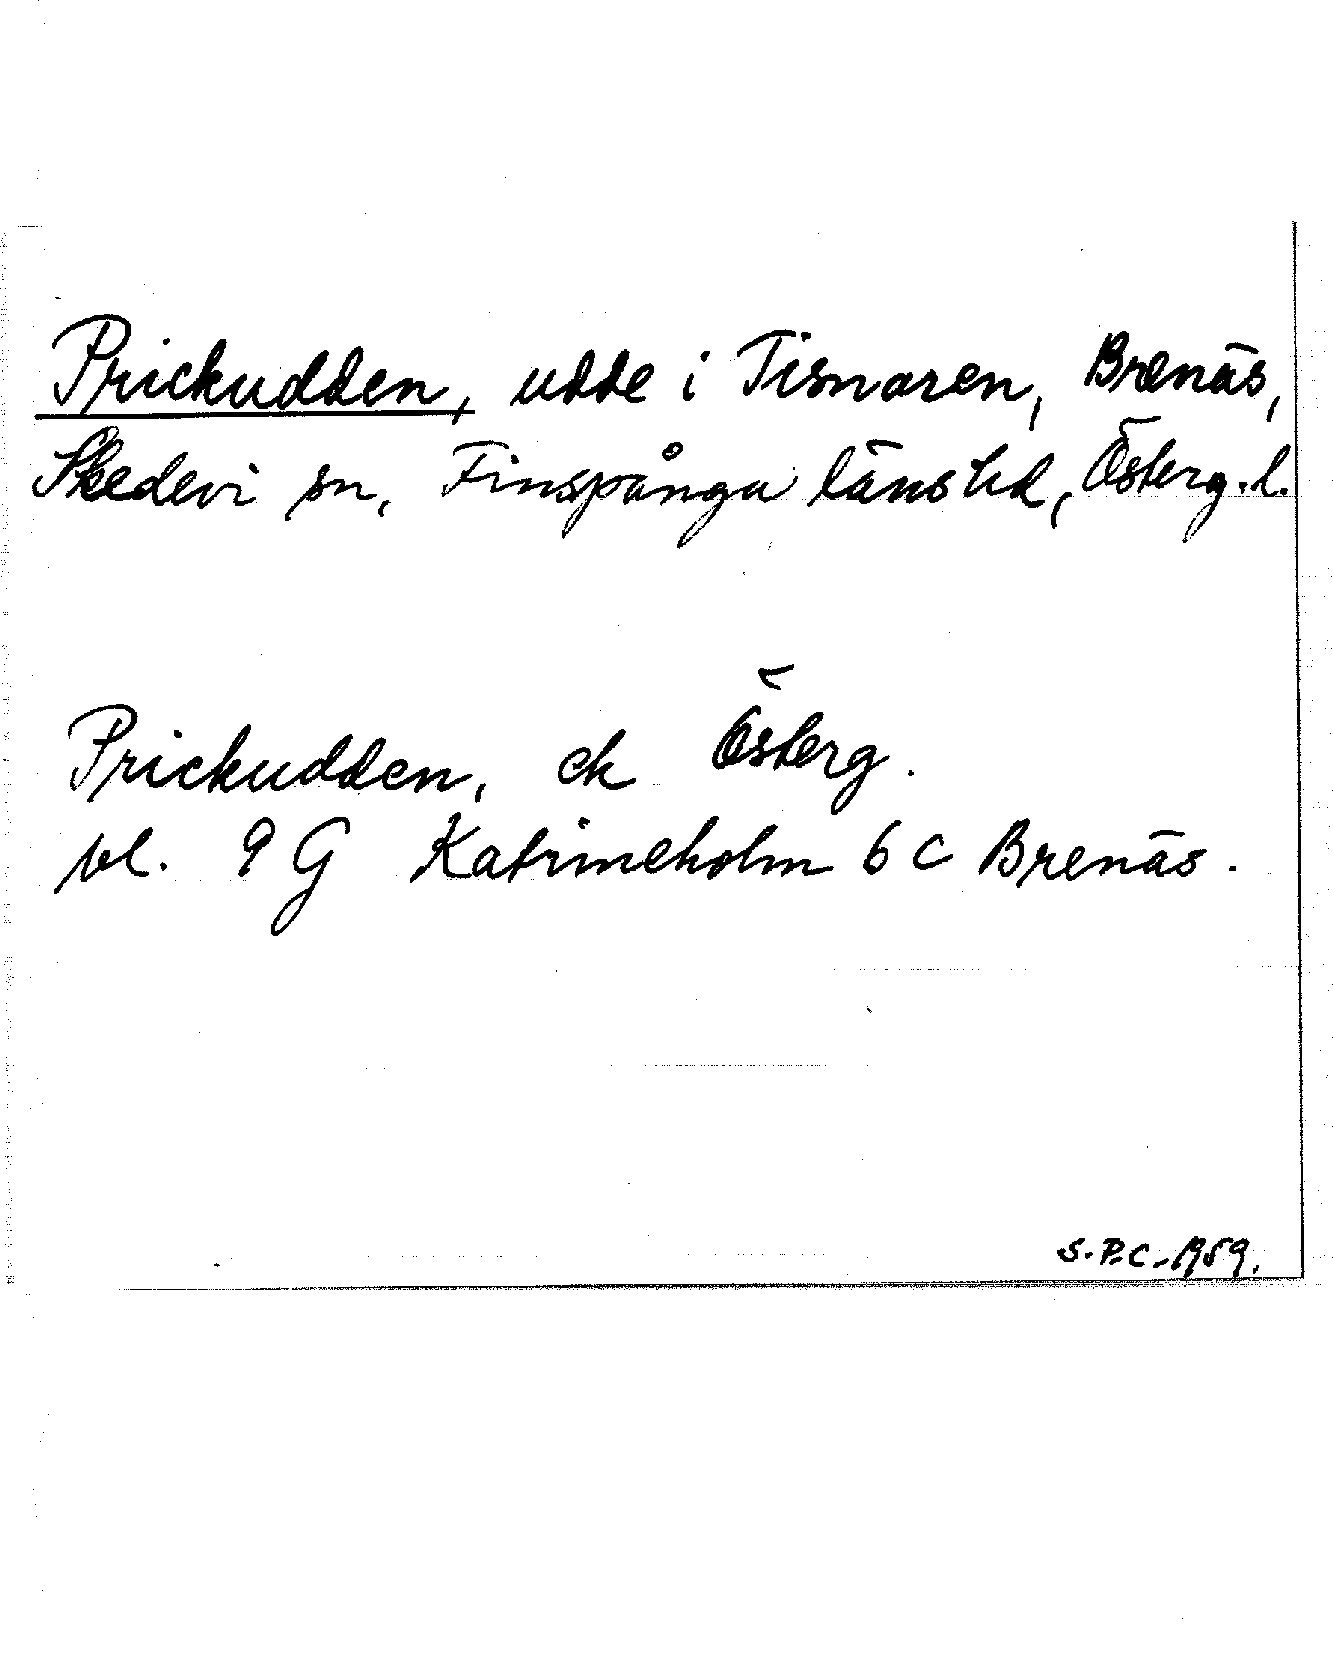 Prickudden, udde i Tisnaren, Brenäs,
Skedevi sn, Finspånga länshd, Österg. l.
Prickudden, ek Österg.
bl. 9 G Katrineholm 6 c Brenäs.
S. P. C. 1959.